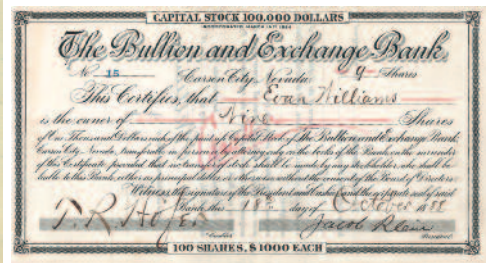 CAPITAL STOCK 100.000 DOLLARS
The Bullion and Exchange Bank
No 15 Carson City, Nevada. 9 Shares
This Certifies, that Evan Williams
is the owner of Nine Shares
of One Thousand Dollars each of the paid up Capital Stock of The Bullion and Exchange Bank
Carson City, Nevada, transferable in person or by attorney only on the books of the Bank, on the surrender
of this Certificate provided that no transfer of stock shall be made by any stockholder who shall be
liable to this Bank, either as principal debtor, or otherwise without the consent of the Board of Directors
Witness, the signatures of the President and Cashier, and the corporate seal of said
Bank, this 18th day of October 1888
Jacob Klein
Cashier President
100 SHARES, $1000 EACH